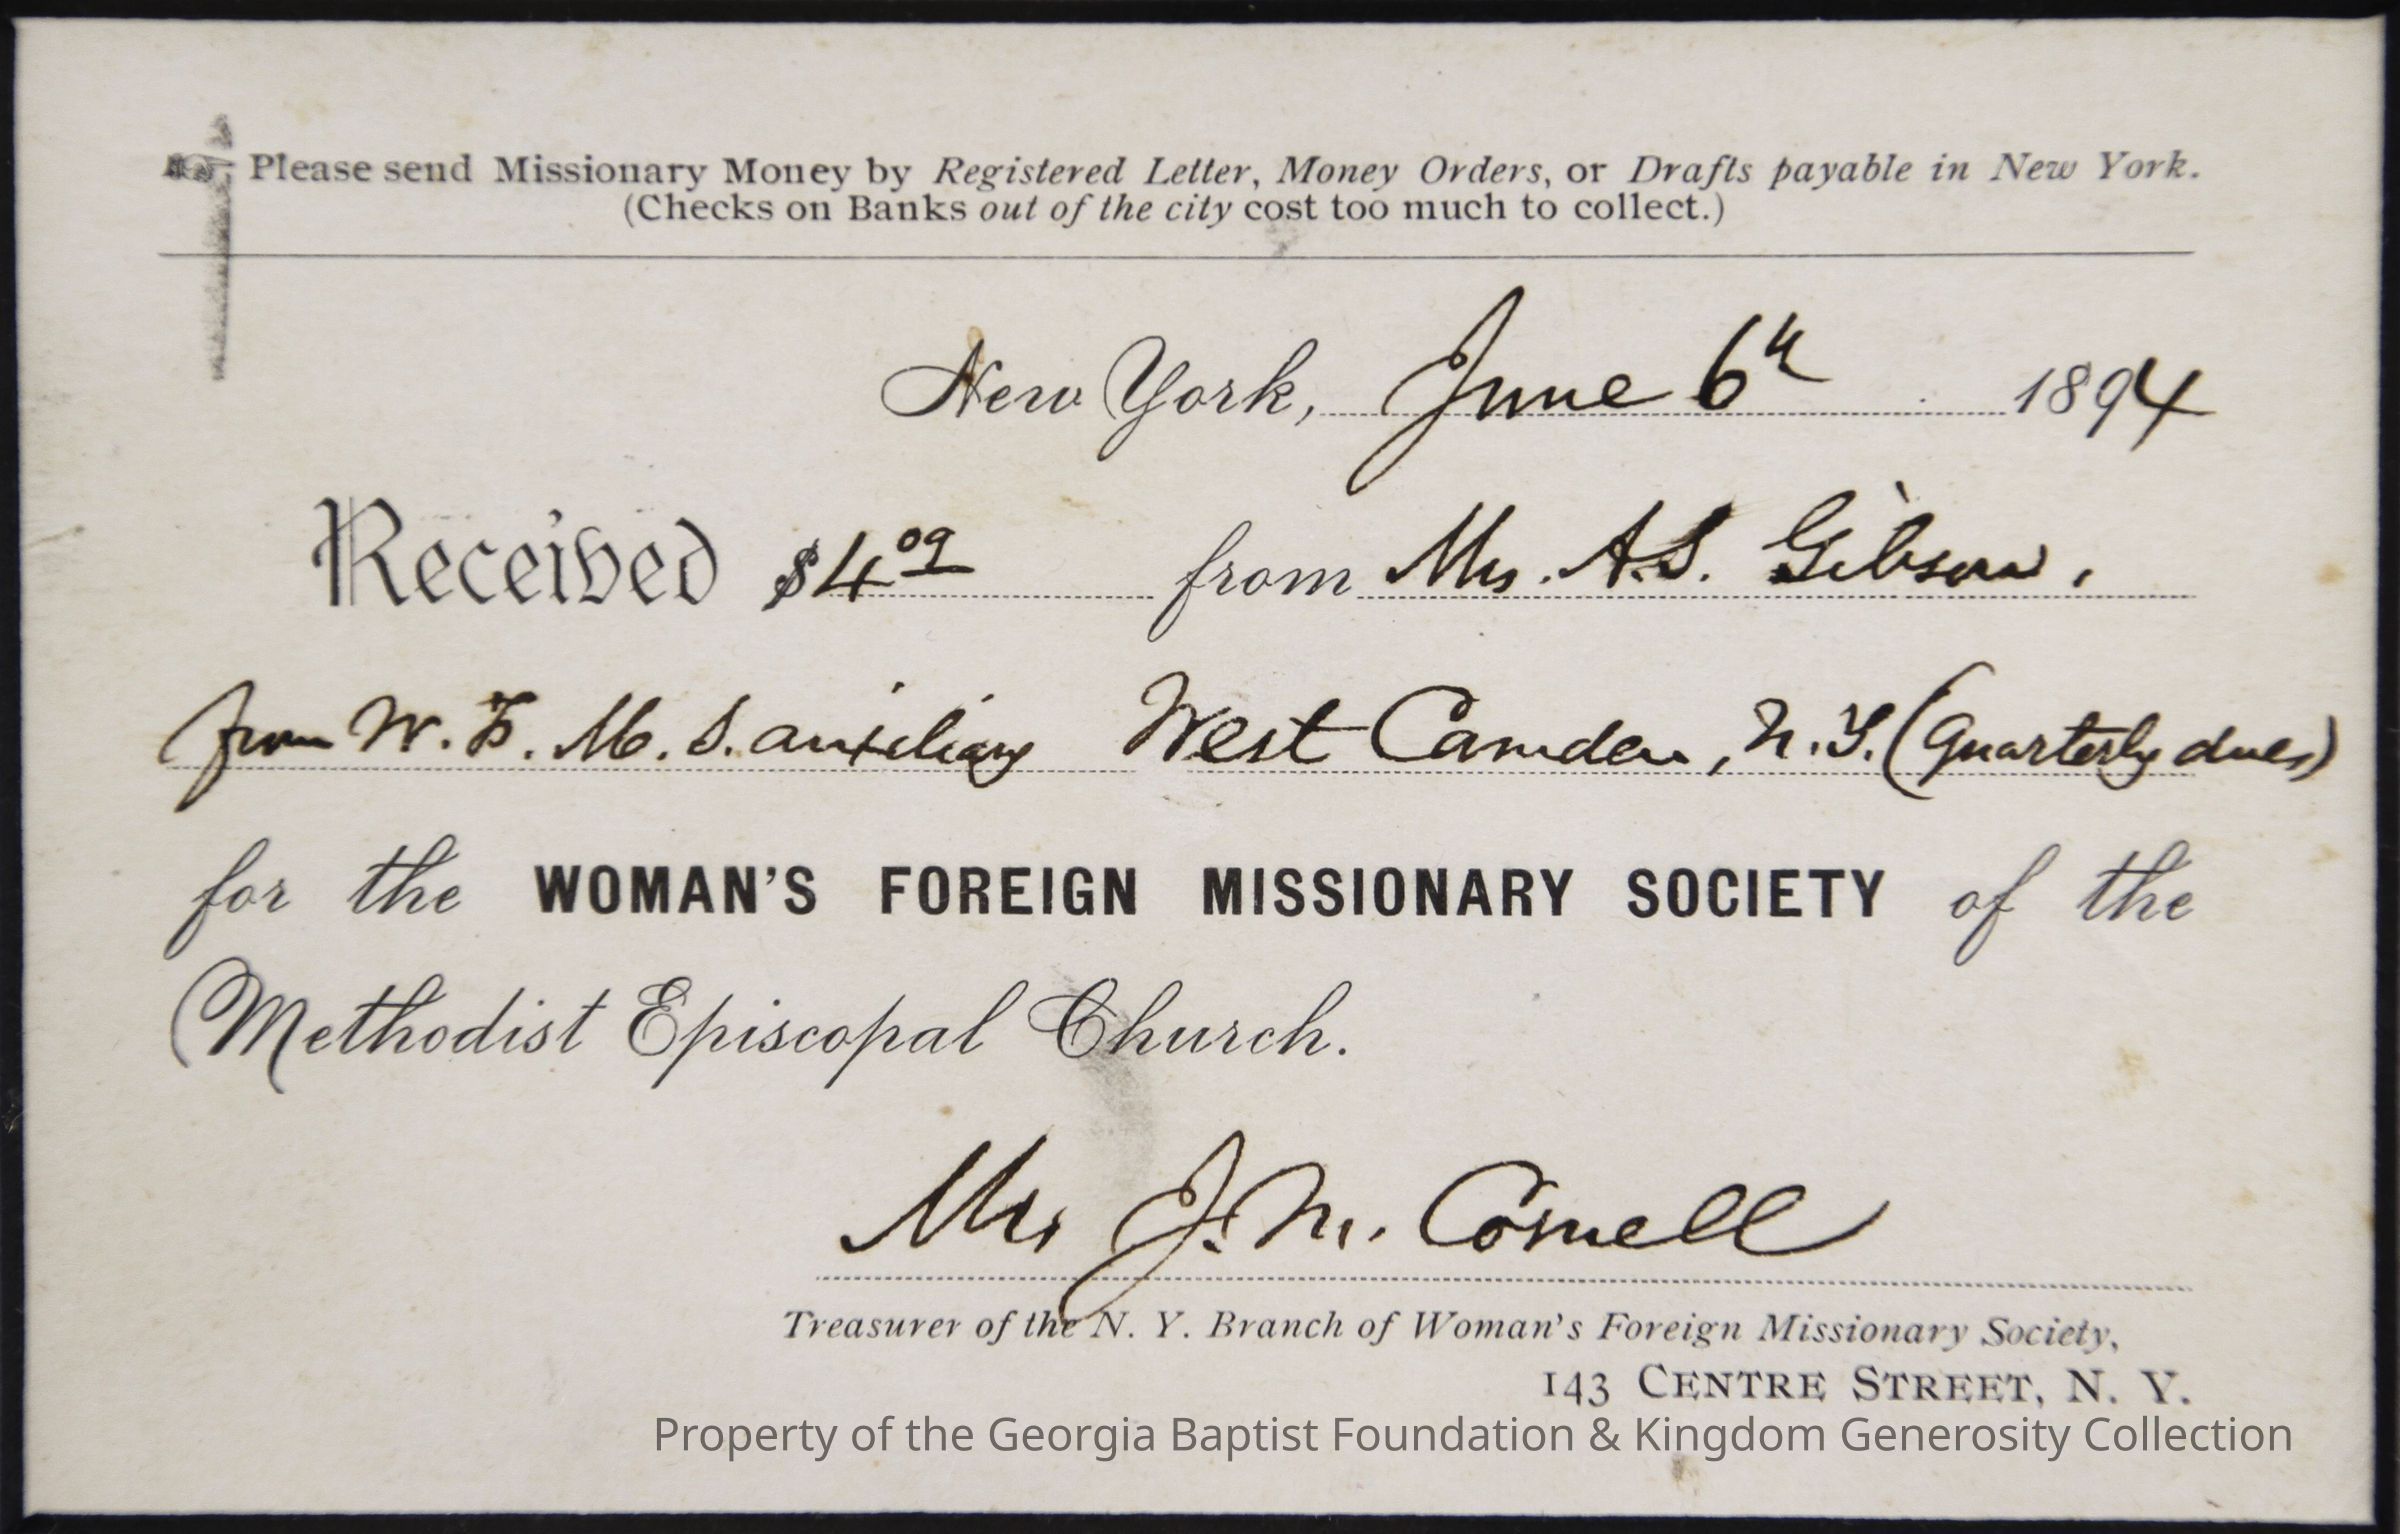 Please send Missionary Money by Registered Letter, Money Orders, or Drafts payable in New York.
(Checks on Banks out of the city cost too much to collect.)
New York, June 6th 1894
Received $4.09 from Mrs. A.S. Gibson,
from W. F. M. S. auxiliary West Camden, N.Y. (Quarterly dues)
for the WOMAN'S FOREIGN MISSIONARY SOCIETY of the
Methodist Episcopal Church.
Mrs J. M. Cornell
Treasurer of the N. Y. Branch of Woman's Foreign Missionary Society,
143 CENTRE STREET, N. Y.
Property of the Georgia Baptist Foundation & Kingdom Generosity Collection